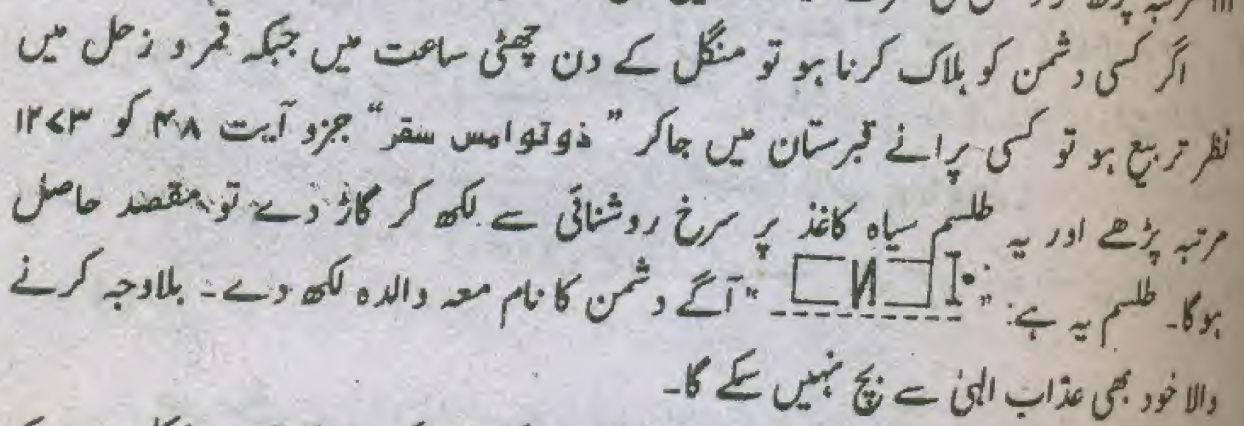 ۱۱۱ مرتبہ
اگر کسی دشمن کو ہلاک کرنا ہو تو منگل کے دن چھٹی ساعت میں جبکہ قمر و زحل میں
نظر تربیع ہو تو کسی پرانے قبرستان میں جاکر " ذوتوامس سقر" جزو آیت ۴۸ کو ۱۲۷۳
مرتبہ پڑھے اور یہ طلسم سیاہ کاغذ پر سرخ روشنائی سے لکھ کر گاڑ دے تو مقصد حاصل
ہوگا۔ طلسم یہ ہے: " " آگے دشمن کا نام معہ والدہ لکھ دے۔ بلاوجہ کرنے
والا خود بھی عذاب الہیٰ سے بچ نہیں سکے گا۔